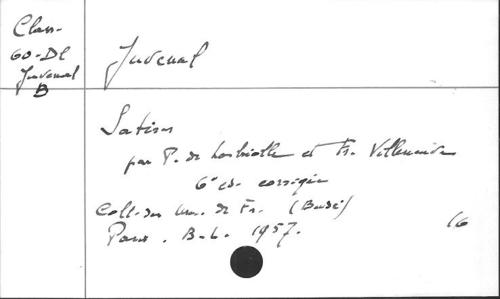 Class-
60-DL
Juvenal
B
Juvenal
Satires
par P. de Labriolle et Fr. Villeneuve
6e ed. corrigée
Coll. des Un. de Fr. (Budé)
Paris. B.-L. 1957.
16